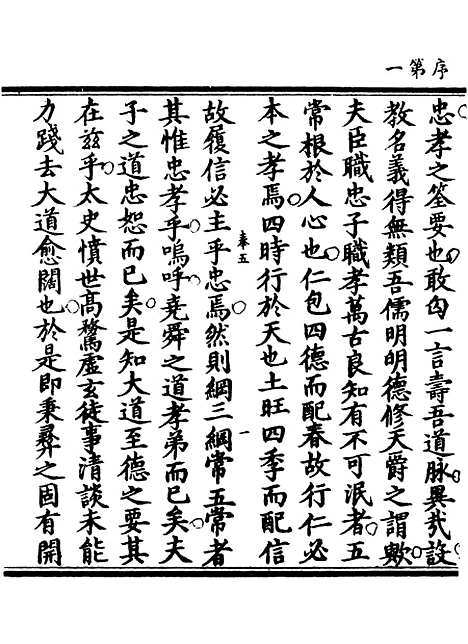 序第一
忠孝之筌要也敢匄一言壽吾道脉異哉設
教名義得無類吾儒明明德修天爵之謂歟
夫臣職忠子職孝萬古良知有不可泯者五
常根於人心也仁包四德而配春故行仁必
本之孝焉四時行於天也土旺四季而配信
奉五 一
故履信必主乎忠焉然則綱三綱常五常者
其惟忠孝乎嗚呼堯舜之道孝弟而已矣夫
子之道忠恕而已矣是知大道至德之要其
在兹乎太史憤世髙騖虛玄徒事清談未能
力踐去大道愈闊也於是即秉彝之固有開